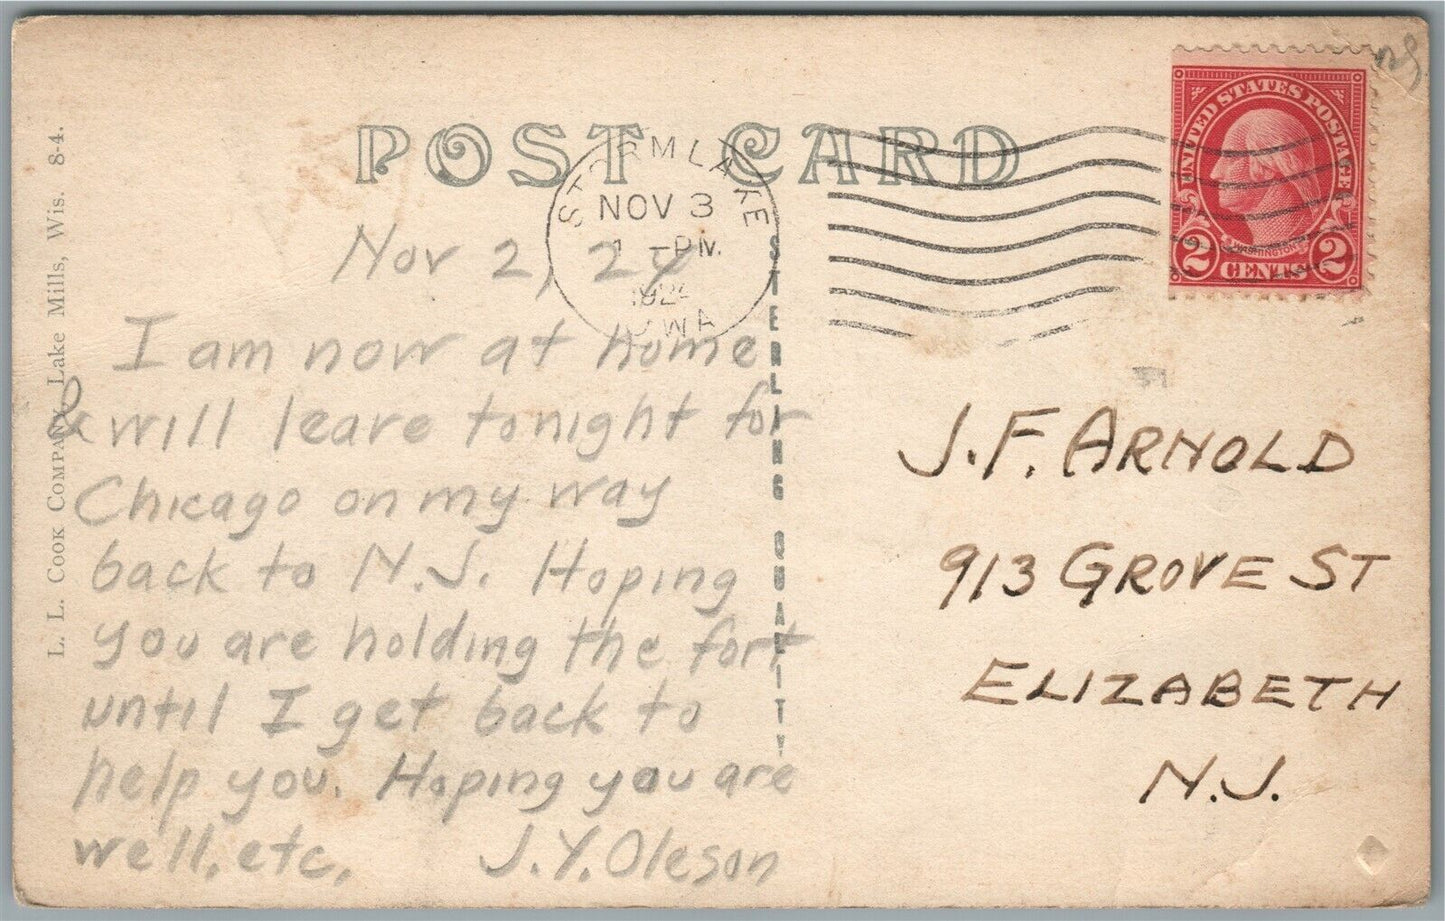 POST CARD
STORM LAKE
NOV 3
PM
IOWA
UNITED STATES POSTAGE
WASHINGTON
2 CENTS 2
L. L. COOK COMPANY, Lake Mills, Wis. 8-4.
STERLING QUALITY
Nov 2, 24
I am now at home
& will leave tonight for
Chicago on my way
back to N.J. Hoping
you are holding the fort
until I get back to
help you. Hoping you are
well, etc. J.Y. Oleson
J.F. ARNOLD
913 GROVE ST
ELIZABETH
N.J.